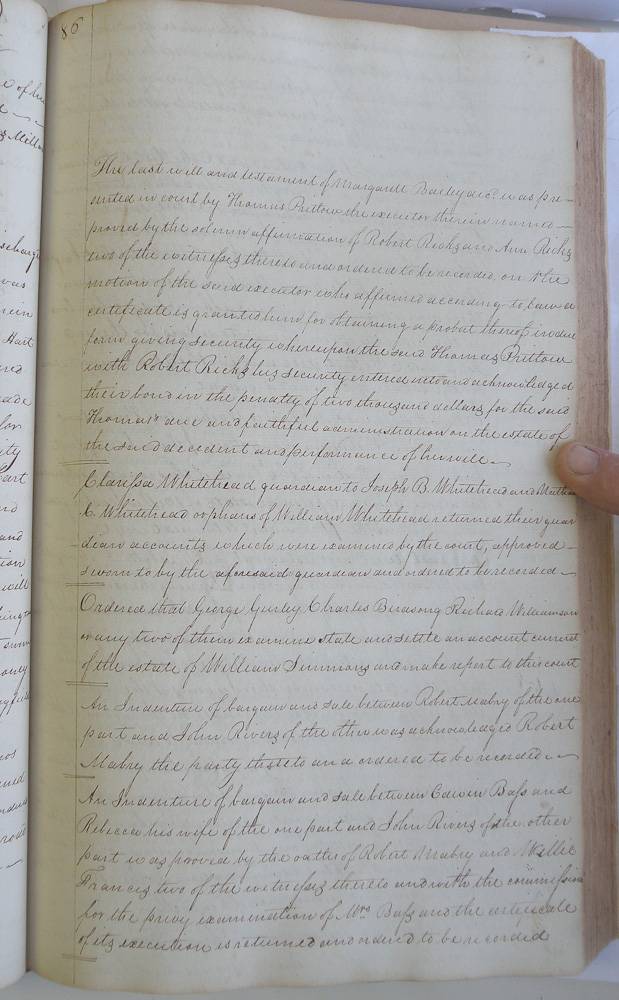 86
The last will and testament of Margarett Bailey decd. was pre-
sented in court by Thomas Pretlow the executor therein named
proved by the solemn affirmation of Robert Ricks and Ann Ricks
two of the witnesses thereto and ordered to be recorded, on the
motion of the said executor who affirmed according to law a
certificate is granted him for obtaining a probat thereof in due
form giving security whereupon the said Thomas Pretlow
with Robert Ricks his security entered into and acknowledged
their bond in the penalty of two thousand dollars for the said
Thomas' due and faithful administration on the estate of
the said decedent and performance of her will
Clarissa Whitehead guardian to Joseph B. Whitehead and
C. Whitehead orphans of William Whitehead returned their guar
dian accounts which were examined by the court, approved
sworn to by the aforesaid guardian and ordered to be recorded
Ordered that George Gurley Charles Birdsong Richard Williamson
or any two of them examine state and settle an account current
of the estate of William Simmons and make report to this court
An Indenture of bargain and sale between Robert Mabry of the one
part and John Rivers of the other was acknowledged Robert
Mabry the party thereto and ordered to be recorded
An Indenture of bargain and sale between Edwin Bass and
Rebecca his wife of the one part and John Rivers of the other
part was proved by the oaths of Robert Mabry and Willie
Francis two of the witnesses thereto and with the commission
for the privy examination of Mrs Bass and the certificate
of its execution is returned and ordered to be recorded